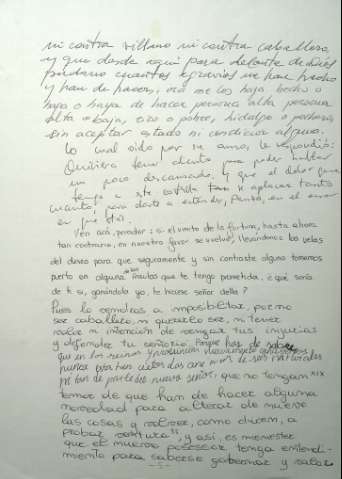 ni contra villano ni contra caballero,
y que desde aquí para delante de Dios
perdono cuantos agravios me han hecho
y han de hacer, ora me los haya hecho o
haga o haya de hacer persona alta persona
alta o baja, rico o pobre, hidalgo o pechero,
sin aceptar estado ni condición alguna.
Lo cual oído por su amo, le respondió:
Quisiera tener aliento para poder hablar
un poco descansado, y que el dolor que
tengo en esta costilla se aplacara tanto
cuanto, para darte a entender, Panza, en el error
en que estás.
Ven acá, pecador: si el viento de la fortuna, hasta ahora
tan contrario, en nuestro favor se vuelve, llevándonos las velas
del deseo para que seguramente y sin contraste alguno tomemos
puerto en alguna de las ínsulas que te tengo prometida, ¿qué sería
de ti si, ganándola yo, te hiciese señor della?
Pues lo vendrías a imposibilitar, por no
ser caballero, ni quererlo ser, ni tener
valor ni intención de vengar tus injurias
y defender tu señorío. Porque has de saber
que en los reinos y provincias nuevamente conquistados
nunca están quietos los ánimos de sus naturales
ni tan de parte del nuevo señor, que no tengan XIX
temor de que han de hacer alguna
novedad para alterar de nuevo
las cosas y volver, como dicen, a
probar ventura, y así, es menester
que el nuevo posesor tenga entendi-
miento para saberse gobernar y valor